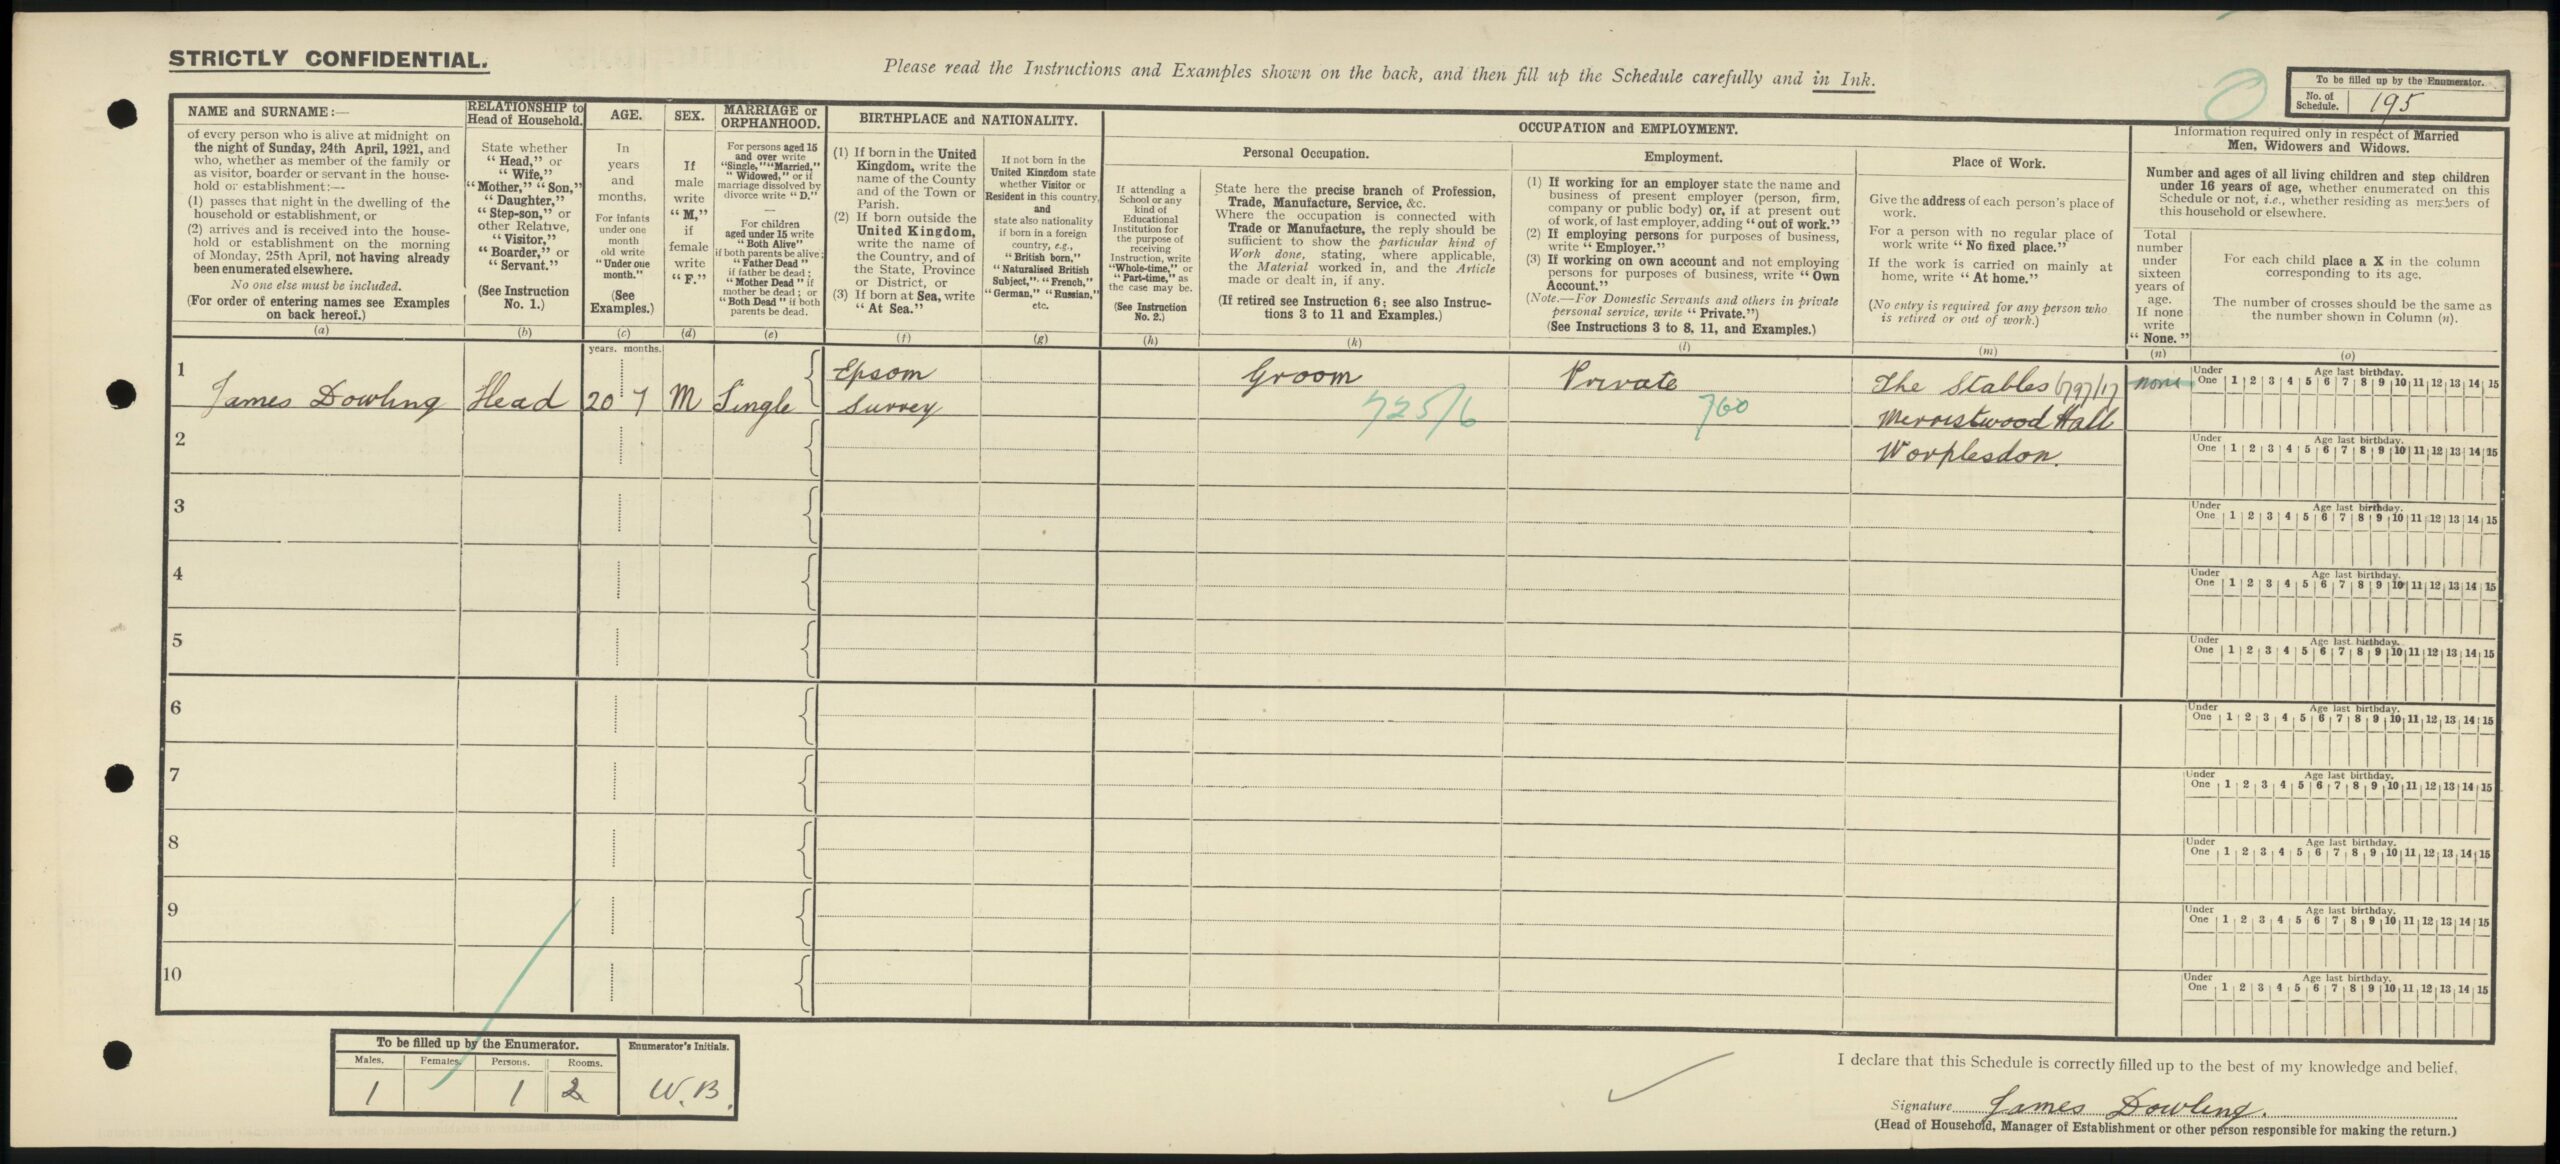 STRICTLY CONFIDENTIAL.
Please read the Instructions and Examples shown on the back, and then fill up the Schedule carefully and in Ink.
To be filled up by the Enumerator.
No. of Schedule. 195
NAME and SURNAME:—
of every person who is alive at midnight on
the night of Sunday, 24th April, 1921, and
who, whether as member of the family or
as visitor, boarder or servant in the house-
hold or establishment:—
(1) passes that night in the dwelling of the
household or establishment, or
(2) arrives and is received into the house-
hold or establishment on the morning
of Monday, 25th April, not having already
been enumerated elsewhere.
No one else must be included.
(For order of entering names see Examples
on back hereof.)
(a)
RELATIONSHIP to
Head of Household.
State whether
"Head," or
"Wife,"
"Mother," "Son,"
"Daughter,"
"Step-son," or
other Relative,
"Visitor,"
"Boarder," or
"Servant."
(See Instruction
No. 1.)
(b)
AGE.
In
years
and
months.
For infants
under one
month
old write
"Under one
month."
(See
Examples.)
(c)
SEX.
If
male
write
"M,"
if
female
write
"F."
(d)
MARRIAGE or
ORPHANHOOD.
For persons aged 15
and over write
"Single," "Married,"
"Widowed," or if
marriage dissolved by
divorce write "D."
—
For children
aged under 15 write
"Both Alive"
if both parents be alive;
"Father Dead"
if father be dead;
"Mother Dead" if
mother be dead; or
"Both Dead" if both
parents be dead.
(e)
BIRTHPLACE and NATIONALITY.
(1) If born in the United
Kingdom, write the
name of the County
and of the Town or
Parish.
(2) If born outside the
United Kingdom,
write the name of
the Country, and of
the State, Province
or District, or
(3) If born at Sea, write
"At Sea."
(f)
If not born in the
United Kingdom state
whether Visitor or
Resident in this country,
and
state also nationality
if born in a foreign
country, e.g.,
"British born,"
"Naturalised British
Subject," "French,"
"German," "Russian,"
etc.
(g)
OCCUPATION and EMPLOYMENT.
If attending a
School or any
kind of
Educational
Institution for
the purpose of
receiving
Instruction, write
"Whole-time," or
"Part-time," as
the case may be.
(See Instruction
No. 2.)
(h)
Personal Occupation.
State here the precise branch of Profession,
Trade, Manufacture, Service, &c.
Where the occupation is connected with
Trade or Manufacture, the reply should be
sufficient to show the particular kind of
Work done, stating, where applicable,
the Material worked in, and the Article
made or dealt in, if any.
(If retired see Instruction 6; see also Instruc-
tions 3 to 11 and Examples.)
(k)
Employment.
(1) If working for an employer state the name and
business of present employer (person, firm,
company or public body) or, if at present out
of work, of last employer, adding "out of work."
(2) If employing persons for purposes of business,
write "Employer."
(3) If working on own account and not employing
persons for purposes of business, write "Own
Account."
(Note.—For Domestic Servants and others in private
personal service, write "Private.")
(See Instructions 3 to 8, 11, and Examples.)
(l)
Place of Work.
Give the address of each person's place of
work.
For a person with no regular place of
work write "No fixed place."
If the work is carried on mainly at
home, write "At home."
(No entry is required for any person who
is retired or out of work.)
(m)
Information required only in respect of Married
Men, Widowers and Widows.
Number and ages of all living children and step children
under 16 years of age, whether enumerated on this
Schedule or not, i.e., whether residing as members of
this household or elsewhere.
Total
number
under
sixteen
years of
age.
If none
write
"None."
(n)
For each child place a X in the column
corresponding to its age.
The number of crosses should be the same as
the number shown in Column (n).
(o)
years. months.
1 James Dowling Head 20 7 M Single Epsom Surrey Groom 725/6 Private 760 The Stables
Merristwood Hall
Worplesdon.
none
Under One Age last birthday. 1 2 3 4 5 6 7 8 9 10 11 12 13 14 15
2
Under One Age last birthday. 1 2 3 4 5 6 7 8 9 10 11 12 13 14 15
3
Under One Age last birthday. 1 2 3 4 5 6 7 8 9 10 11 12 13 14 15
4
Under One Age last birthday. 1 2 3 4 5 6 7 8 9 10 11 12 13 14 15
5
Under One Age last birthday. 1 2 3 4 5 6 7 8 9 10 11 12 13 14 15
6
Under One Age last birthday. 1 2 3 4 5 6 7 8 9 10 11 12 13 14 15
7
Under One Age last birthday. 1 2 3 4 5 6 7 8 9 10 11 12 13 14 15
8
Under One Age last birthday. 1 2 3 4 5 6 7 8 9 10 11 12 13 14 15
9
Under One Age last birthday. 1 2 3 4 5 6 7 8 9 10 11 12 13 14 15
10
Under One Age last birthday. 1 2 3 4 5 6 7 8 9 10 11 12 13 14 15
To be filled up by the Enumerator.
Males. Females. Persons. Rooms.
1 1 2
Enumerator's Initials.
W.B.
I declare that this Schedule is correctly filled up to the best of my knowledge and belief.
Signature James Dowling.
(Head of Household, Manager of Establishment or other person responsible for making the return.)